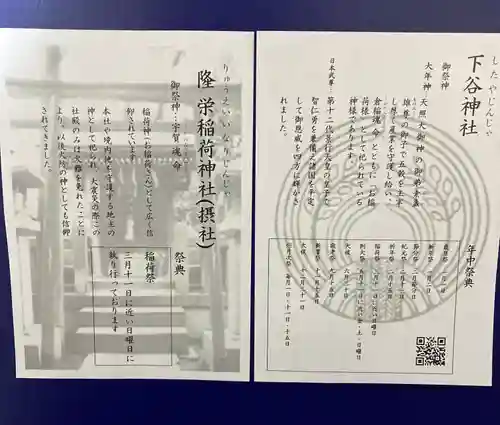 したやじんじゃ
下谷神社
御祭神
大年神
天照大御神の御弟素盞
雄尊の御子で五穀を主宰
し厚く産業を守護し給い、
倉稲魂命とともに「お稲
荷様」として祀られている
神様であります。
日本武尊…第十二代景行天皇の皇子で
智仁勇を兼備え諸国を平定
して御恩威を四方に輝かさ
れました。
年中祭典
歳旦祭 一月一日
新年祭 一月二日
節分祭
紀元祭 二月十一日
祈年祭
稲荷祭
例大祭
大祓 六月三十日
敬老祭 九月十五日
新嘗祭
大祓 十二月三十一日
毎月一日・十一日・十五日
りゅうえいいなりじんじゃ
隆栄稲荷神社(摂社)
御祭神…宇賀魂命
稲荷神(お稲荷さん)として広く信
仰されています。
本社や境内地を守護する地主の
神として祀られ、大震災の際この
社殿のみは火難を免れたことに
より、以後火防の神としても信仰
されてきました。
祭典
稲荷祭
三月十一日に近い日曜日に
執り行っております